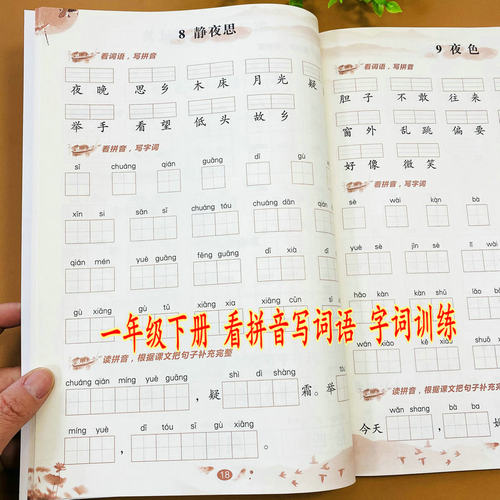 8 静夜思
看词语，写拼音
夜 晚 思 乡 木 床 月 光 疑
举 手 看 望 低 头 故 乡
看拼音，写字词
sī chuáng qián guāng dī gù
xīn si sān sī chuáng tóu chuáng dān xiāng
qián mén yuè guāng fēng guāng dī xià dī
gù xiāng gù tǔ xiāng xia xiāng cūn xiāng
读拼音，根据课文把句子补充完整
chuáng qián míng yuè guāng shì dì shàng
，疑 霜。举
míng yuè dī tóu sī gù xiāng
， 。
18
9 夜 色
看词语，写拼音
胆 子 不 敢 往 来
窗 外 乱 跳 偏 要
好 像 微 笑
看拼音，写字词
sè wài kàn bà
yuè sè jīn sè lì
hǎo kàn kàn shū kàn
wǎn xiào kě xiào shuō
读拼音，根据课文把句子补充
wǎn shang bà ba
今天 ，妈
一年级下册 看拼音写词语 字词训练